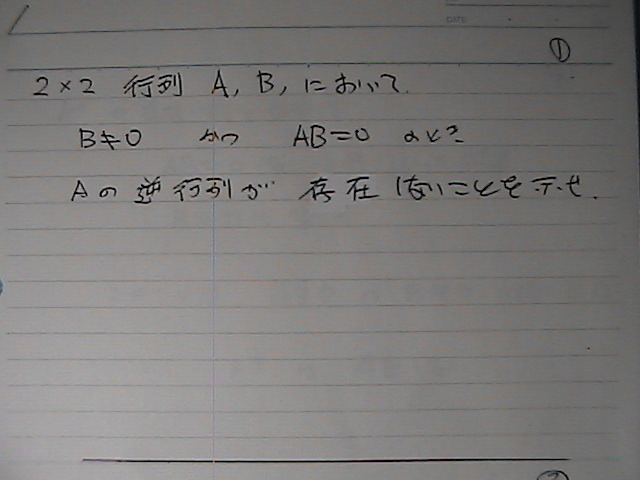 DATE
①
2×2 行列 A, B, において
B≠0 かつ AB=0 のとき
Aの逆行列が 存在しないことを示せ.
②